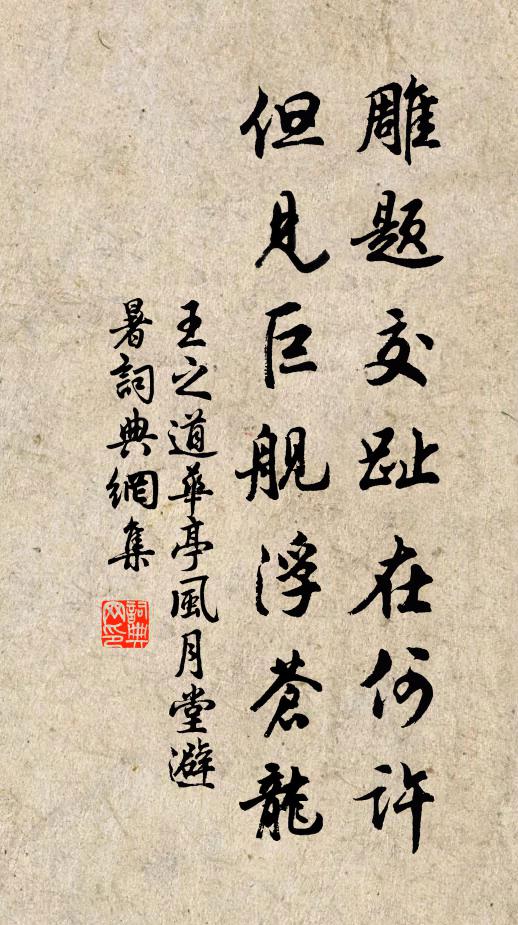 雕题交趾在何许
但见巨舰浮苍龙
王之道華亭風月堂避
暑詞典網集
詞典网印